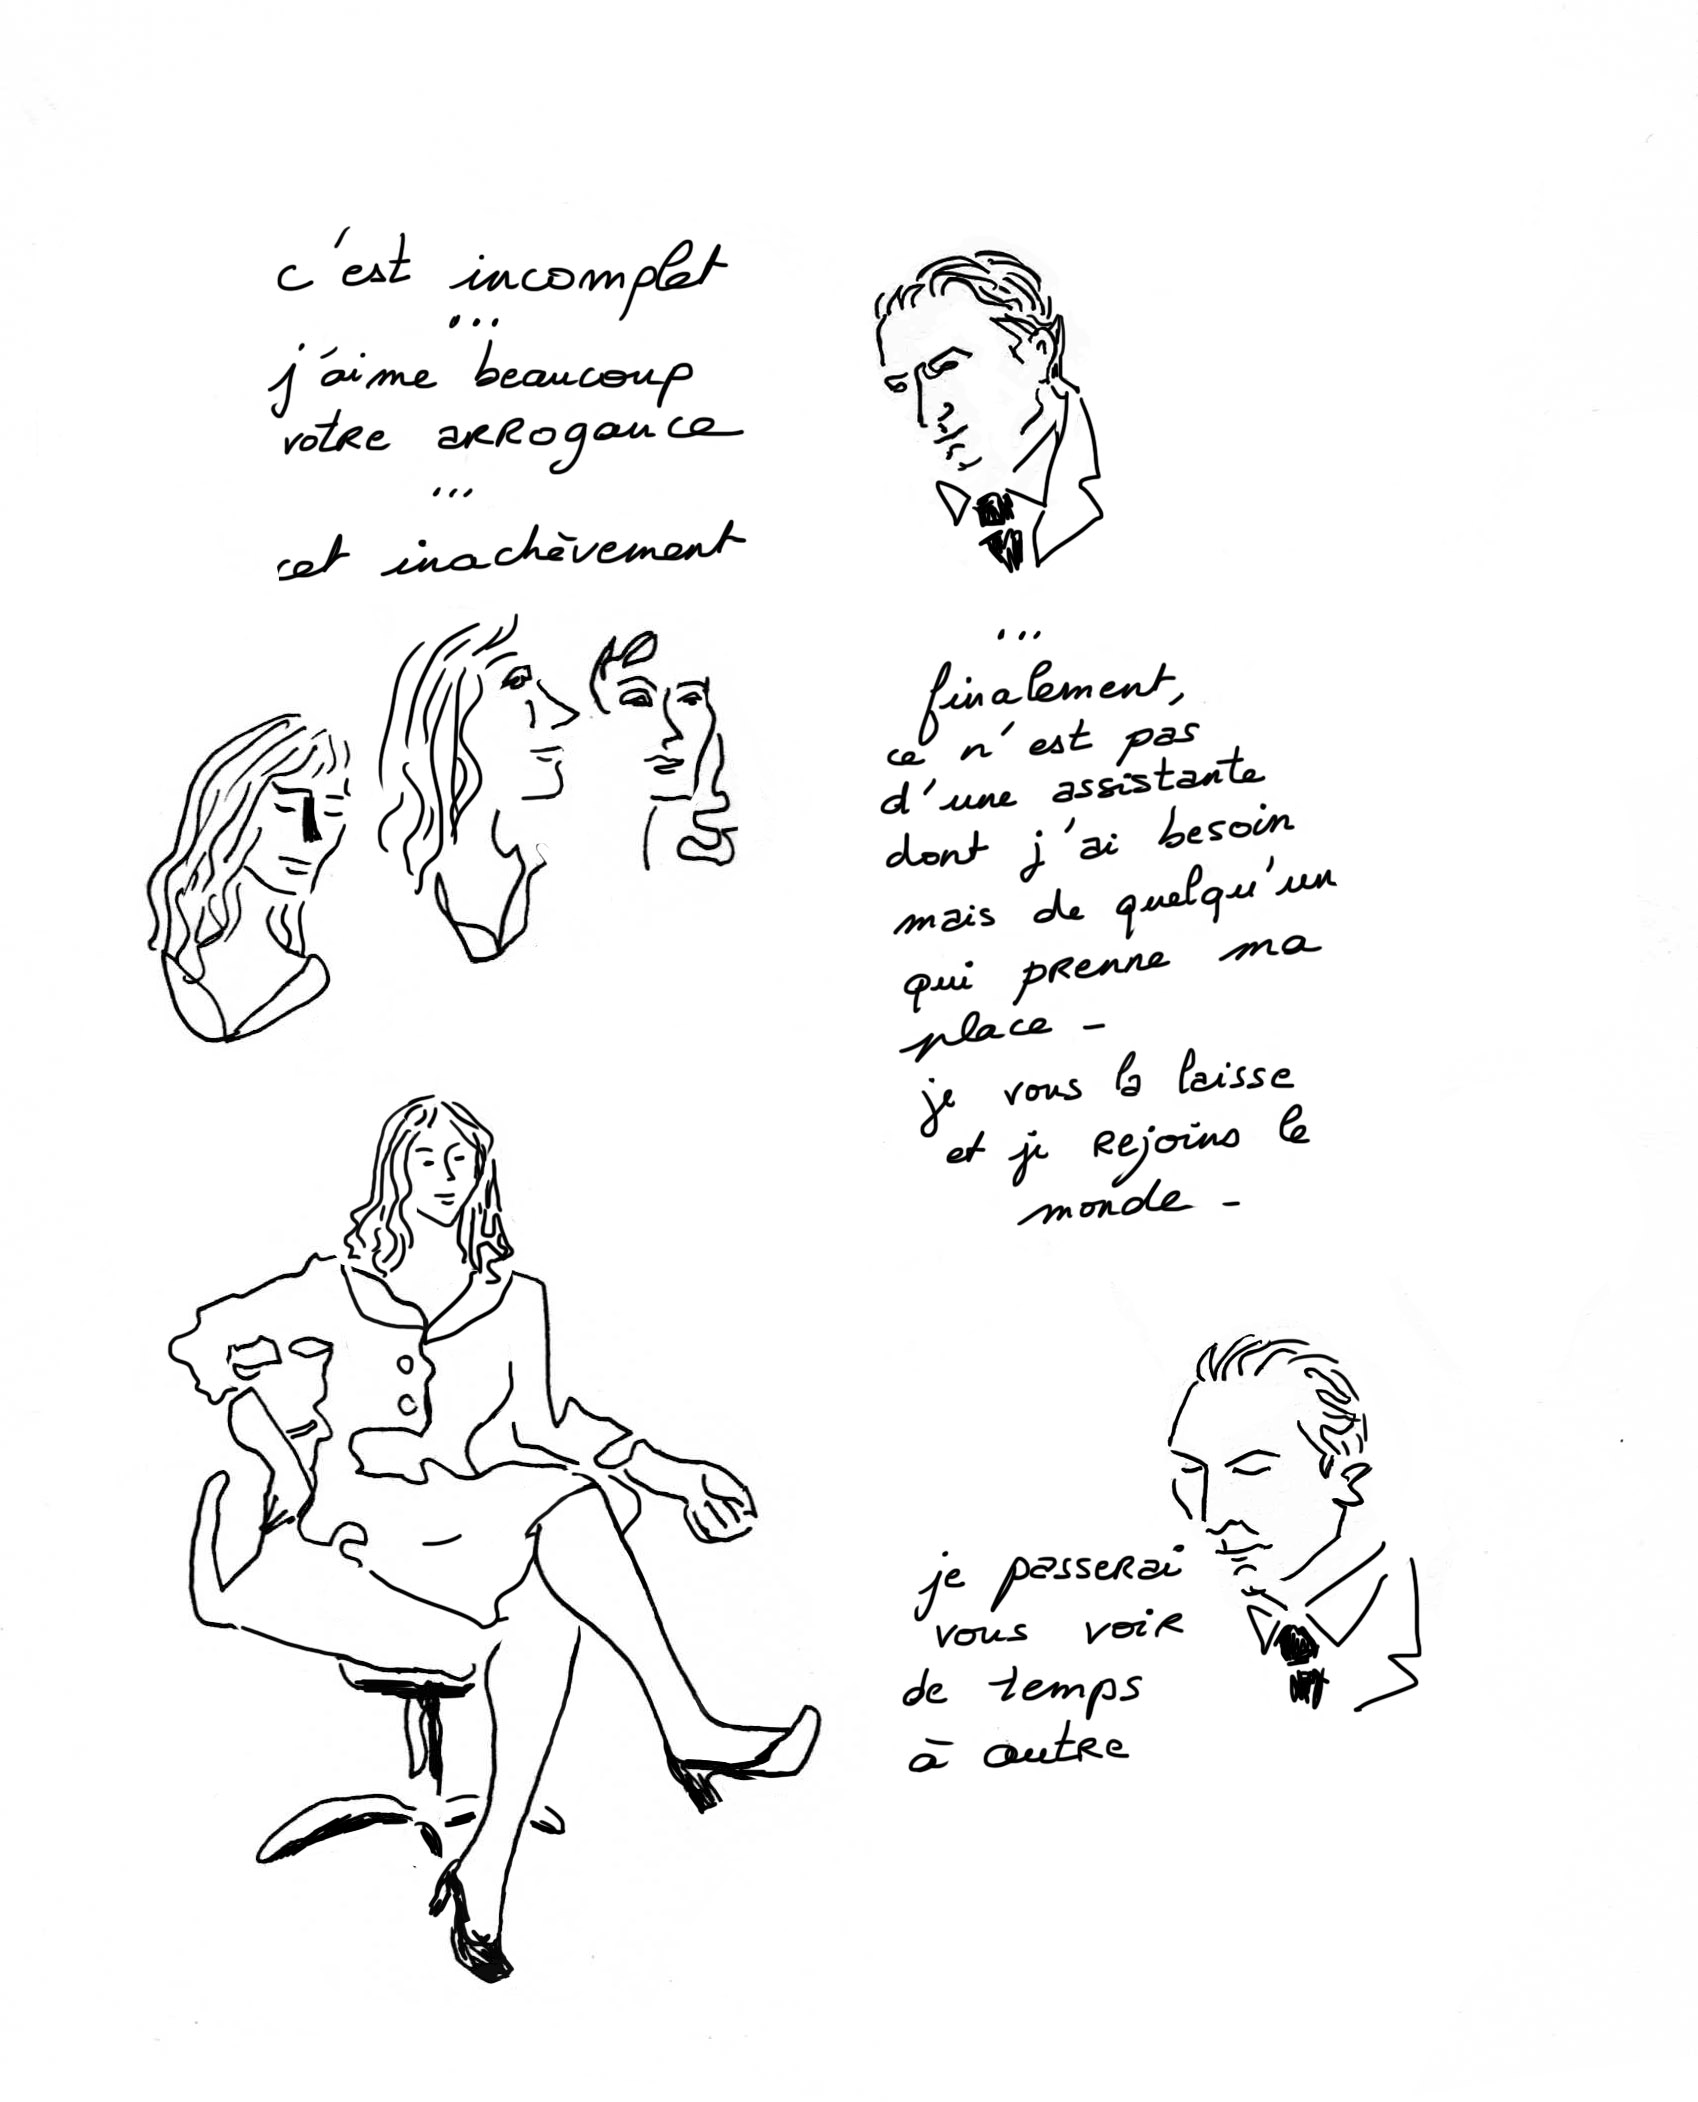 c'est incomplet
...
j'aime beaucoup
votre arrogance
...
cet inachèvement
...
finalement,
ce n'est pas
d'une assistante
dont j'ai besoin
mais de quelqu'un
qui prenne ma
place -
je vous la laisse
et je rejoins le
monde -
je passerai
vous voir
de temps
à autre